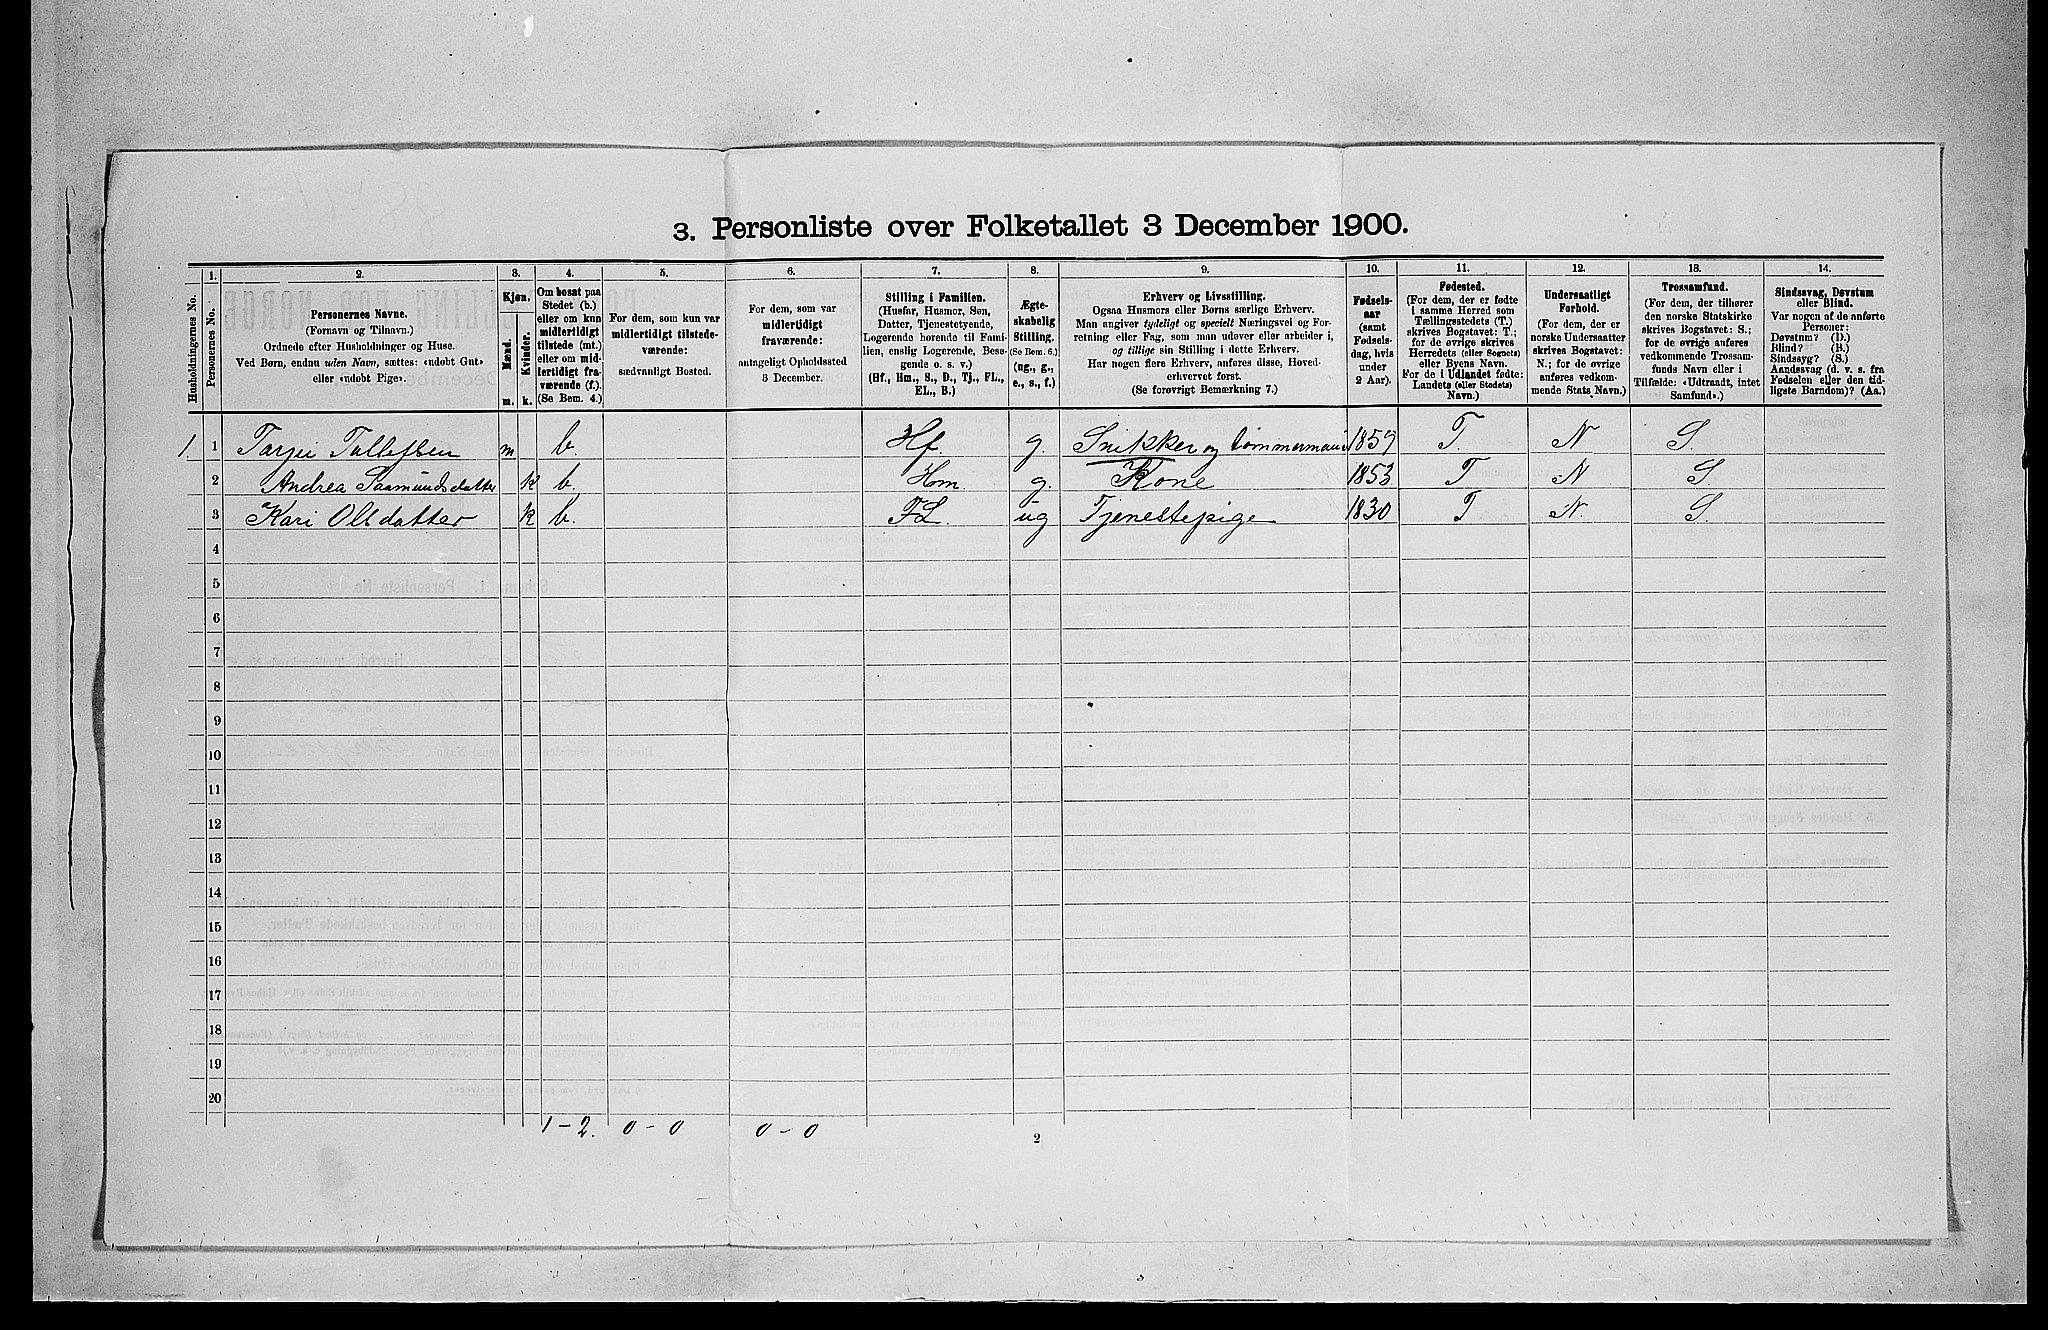 3. Personliste over Folketallet 3 December 1900.
Husholdningernes No.
1.
Personernes No.
2.
Personernes Navne.
(Fornavn og Tilnavn.)
Ordnede efter Husholdninger og Huse.
Ved Børn, endnu uden Navn, sættes: «udøbt Gut»
eller «udøbt Pige».
3.
Kjøn.
Mænd.
Kvinder.
m.
k.
4.
Om bosat paa
Stedet (b.)
eller om kun
midlertidigt
tilstede (mt.)
eller om mid-
lertidigt fra-
værende (f.)
(Se Bem. 4.)
5.
For dem, som kun var
midlertidigt tilstede-
værende:
sædvanligt Bosted.
6.
For dem, som var
midlertidigt
fraværende:
antageligt Opholdssted
3 December.
7.
Stilling i Familien.
(Husfar, Husmor, Søn,
Datter, Tjenestetyende,
Logerende hørende til Fami-
lien, enslig Logerende, Besø-
gende o. s. v.)
(Hf., Hm., S., D., Tj., FL.,
EL., B.)
8.
Ægte-
skabelig
Stilling.
(Se Bem. 6.)
(ug., g.,
e., s., f.)
9.
Erhverv og Livsstilling.
Ogsaa Husmors eller Børns særlige Erhverv.
Man angiver tydeligt og specielt Næringsvei og For-
retning eller Fag, som man udøver eller arbeider i,
og tillige sin Stilling i dette Erhverv.
Har nogen flere Erhverv, anføres disse, Hoved-
erhvervet først.
(Se forøvrigt Bemærkning 7.)
10.
Fødsels-
aar
(samt
Fødsels-
dag, hvis
under
2 Aar).
11.
Fødested.
(For dem, der er fødte
i samme Herred som
Tællingsstedets (T.)
skrives Bogstavet: T.;
for de øvrige skrives
Herredets (eller Sognets)
eller Byens Navn.
For de i Udlandet fødte:
Landets (eller Stedets)
Navn.)
12.
Undersaatligt
Forhold.
(For dem, der er
norske Undersaatter
skrives Bogstavet:
N.; for de øvrige
anføres vedkom-
mende Stats Navn.)
13.
Trossamfund.
(For dem, der tilhører
den norske Statskirke
skrives Bogstavet: S.;
for de øvrige anføres
vedkommende Trossam-
funds Navn eller i
Tilfælde: «Udtraadt, intet
Samfund».)
14.
Sindssvag, Døvstum
eller Blind.
Var nogen af de anførte
Personer:
Døvstum? (D.)
Blind? (B.)
Sindssyg? (S.)
Aandssvag (d. v. s. fra
Fødselen eller den tid-
ligste Barndom)? (Aa.)
1. 1 Tarjei Tollefsen m b. Hf. g. Snikker og tømmermand 1859 T. N S.
2 Andrea Saamundsdatter k b. Hm g. Kone 1853 T N S
3 Kari Olsdatter k b. FL. ug Tjenestepige 1830 T N. S.
4
5
6
7
8
9
10
11
12
13
14
15
16
17
18
19
20
1 - 2. 0 - 0 0 - 0
2